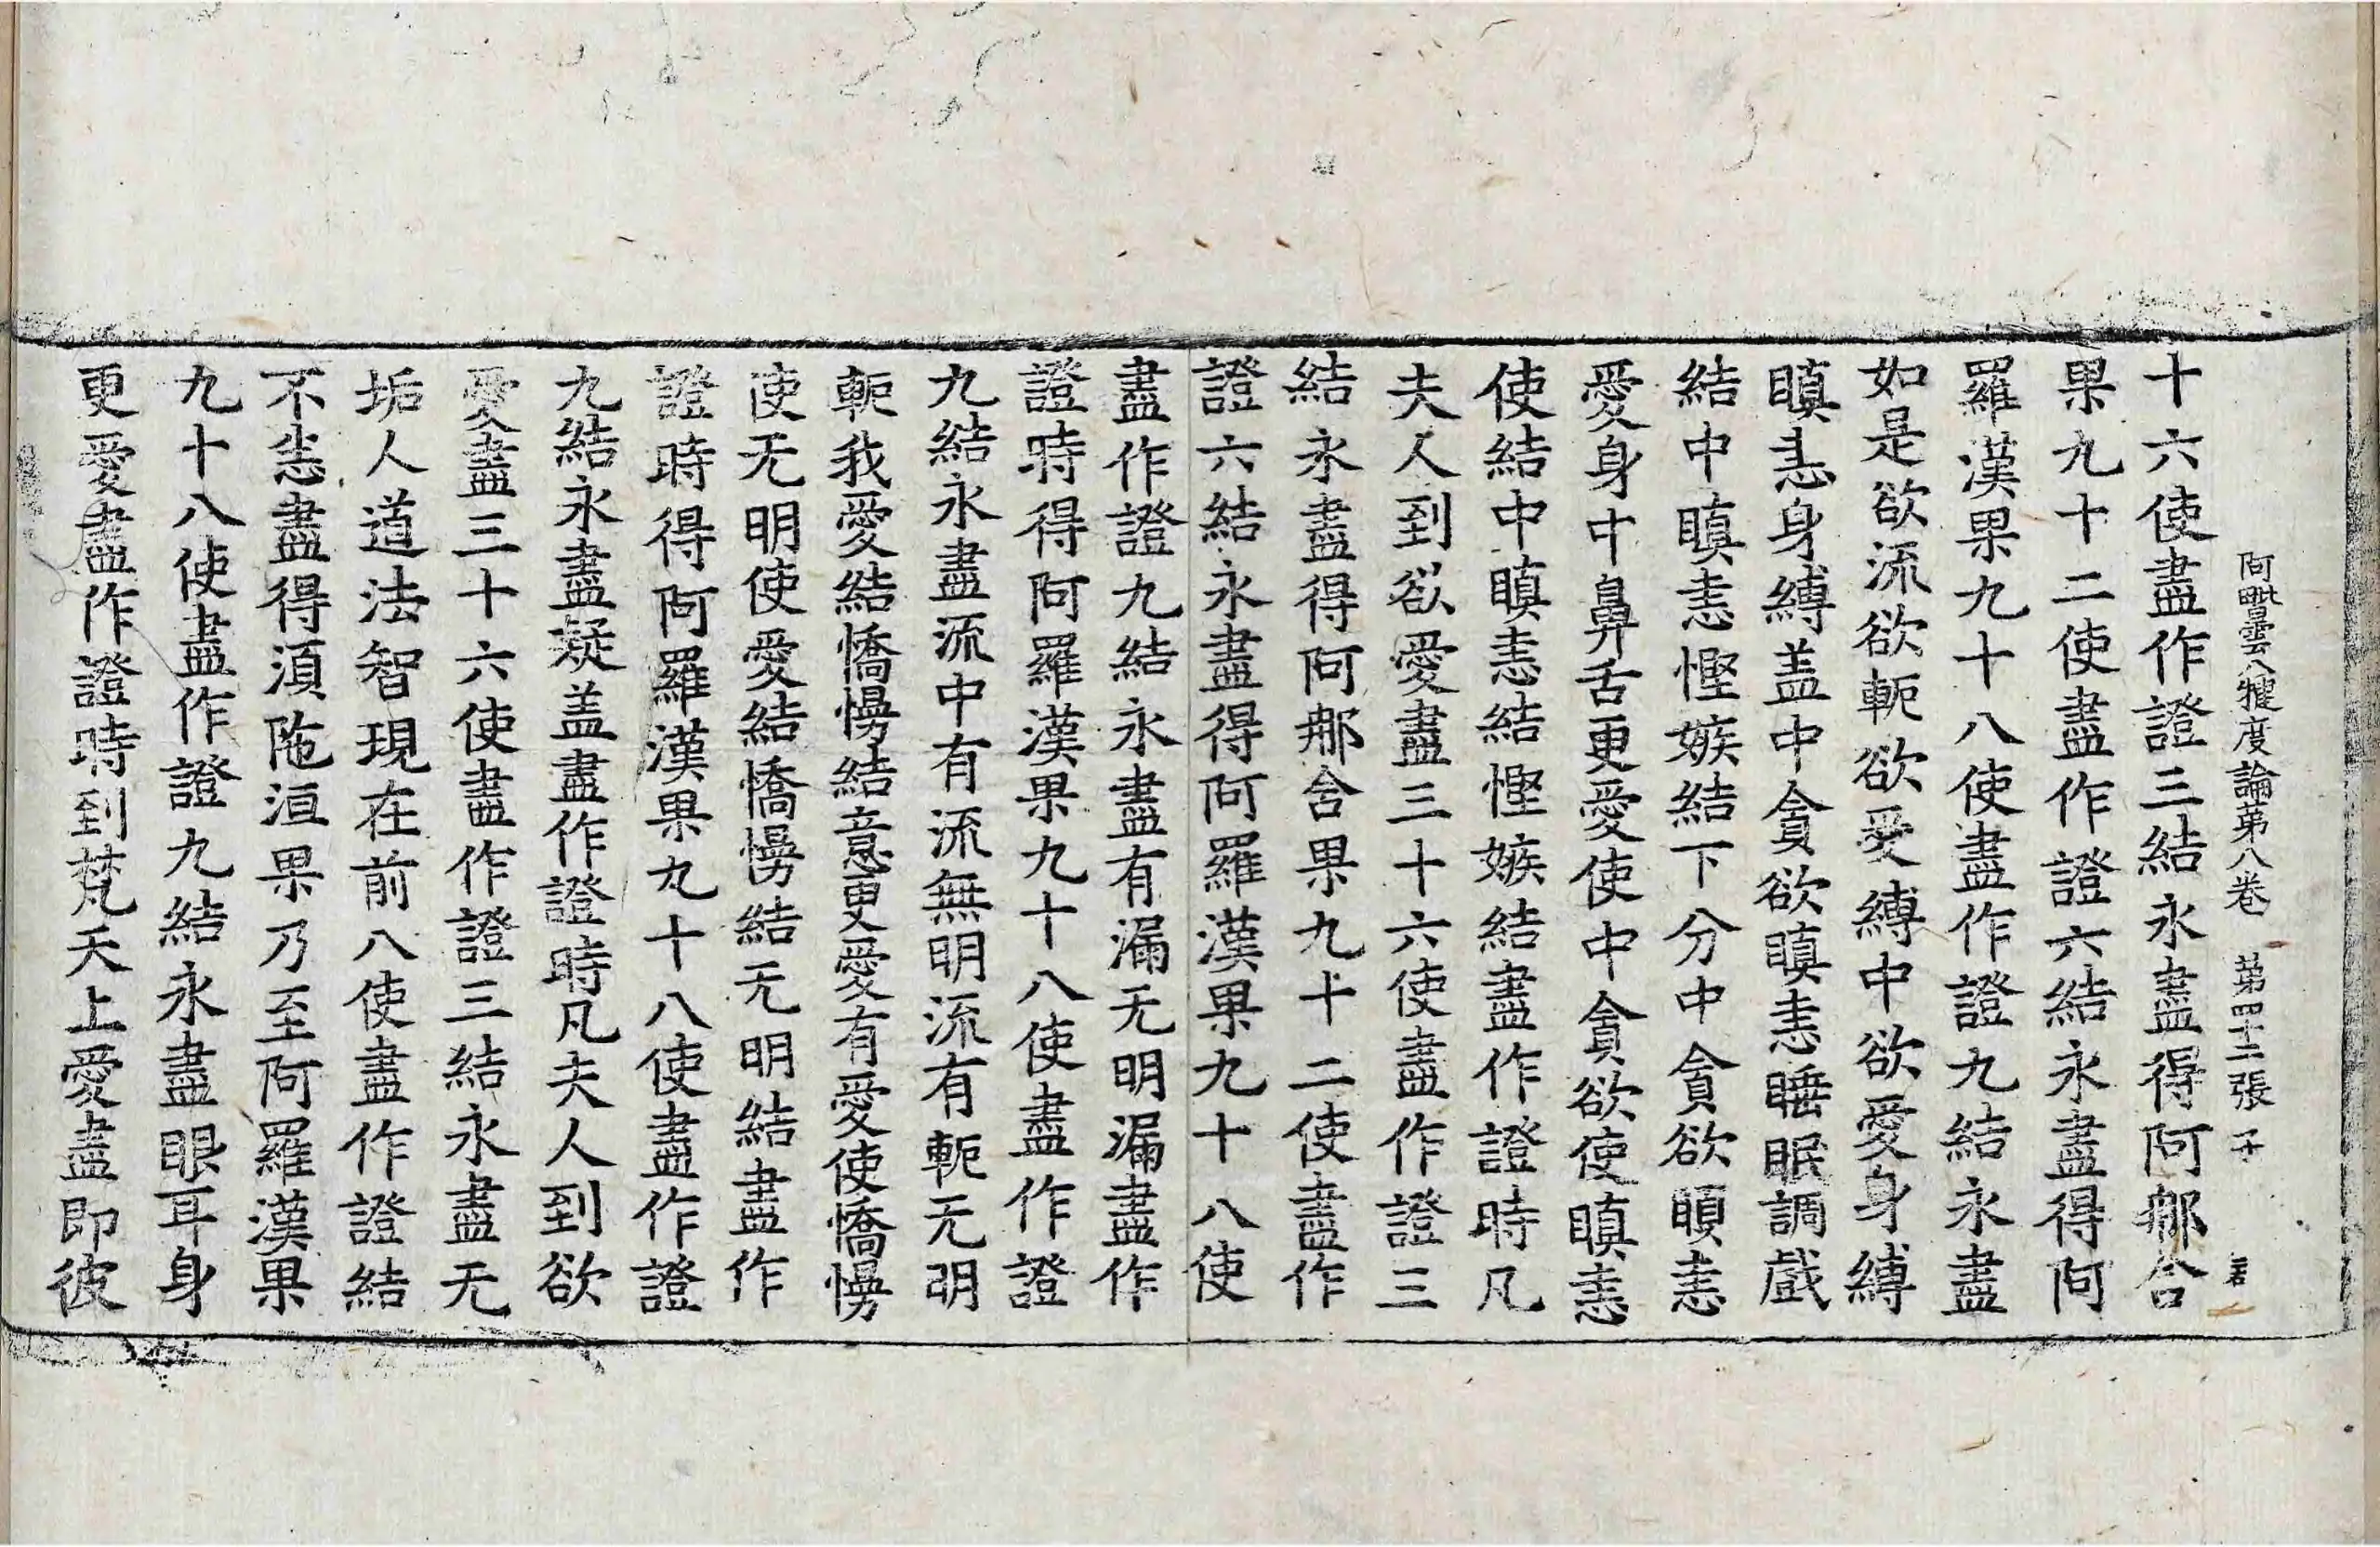 阿毗曇八犍度論第八卷 第四十二張 子
十六使盡作證三結永盡得阿那含
果九十二使盡作證六結永盡得阿
羅漢果九十八使盡作證九結永盡
如是欲流欲軛欲受縛中欲愛身縛
瞋恚身縛盖中貪欲瞋恚睡眠調戲
結中瞋恚慳嫉結下分中貪欲瞋恚
愛身中鼻舌更愛使中貪欲使瞋恚
使結中瞋恚結慳嫉結盡作證時凡
夫人到欲愛盡三十六使盡作證三
結永盡得阿那含果九十二使盡作
證六結永盡得阿羅漢果九十八使
盡作證九結永盡有漏无明漏盡作
證時得阿羅漢果九十八使盡作證
九結永盡流中有流無明流有軛无明
軛我愛結憍慢結意更愛有愛使憍慢
使无明使愛結憍慢結无明結盡作
證時得阿羅漢果九十八使盡作證
九結永盡疑盖盡作證時凡夫人到欲
愛盡三十六使盡作證三結永盡无
垢人道法智現在前八使盡作證結
不恚盡得湏陁洹果乃至阿羅漢果
九十八使盡作證九結永盡眼耳身
更愛盡作證時到梵天上愛盡即彼